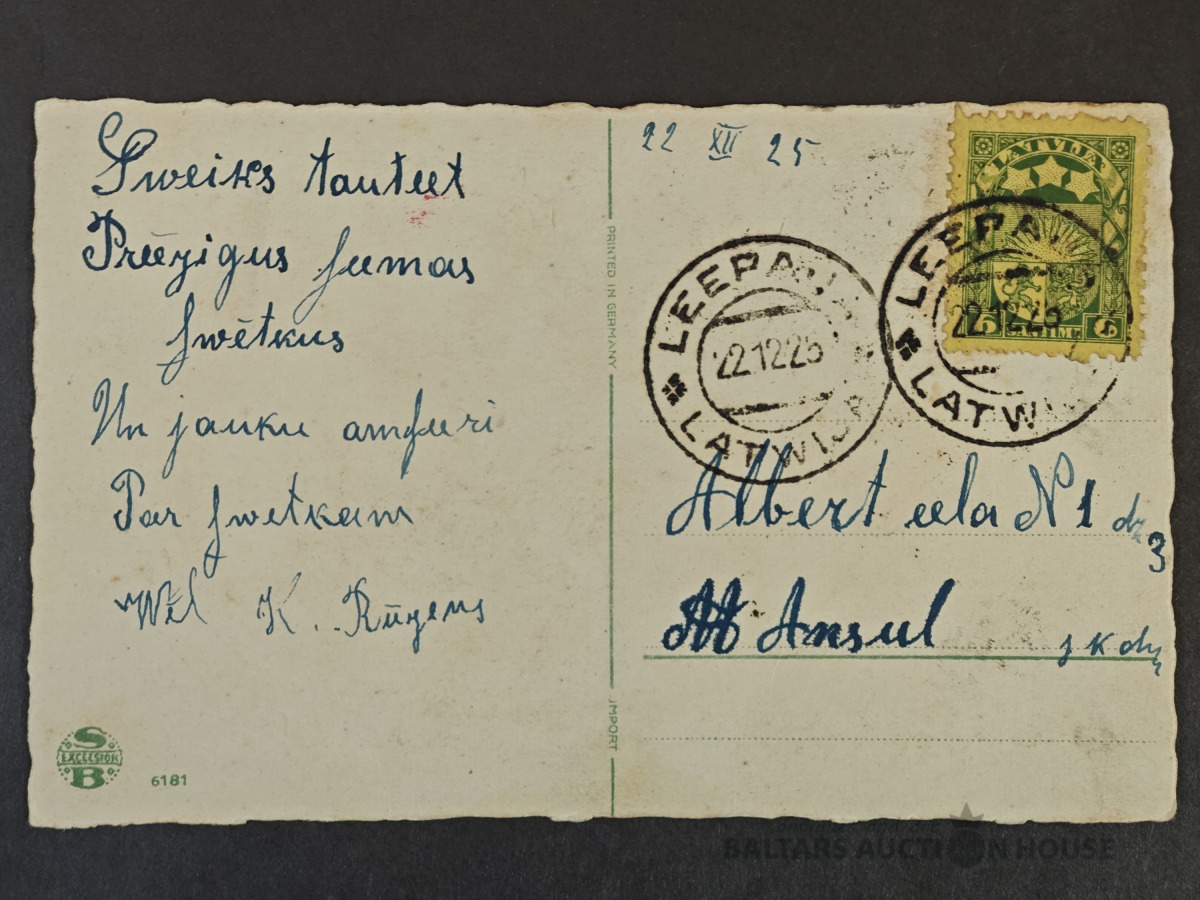 Sweiks tauteet
Preezigus seemas
swētkus
Un jauku amseri
Par swetkam
Wēl K. Rūzens
EXCELSIOR
S B
6181
PRINTED IN GERMANY
IMPORT
22 XII 25
LATVIJA
5 SANTIMI 5
LEEPAJA
22.12.25
LATWIJA
LEEPAJ
22.12.25
LATWI
Albert eela № 1 dz 3
Ansul
BALTARS AUCTION HOUSE